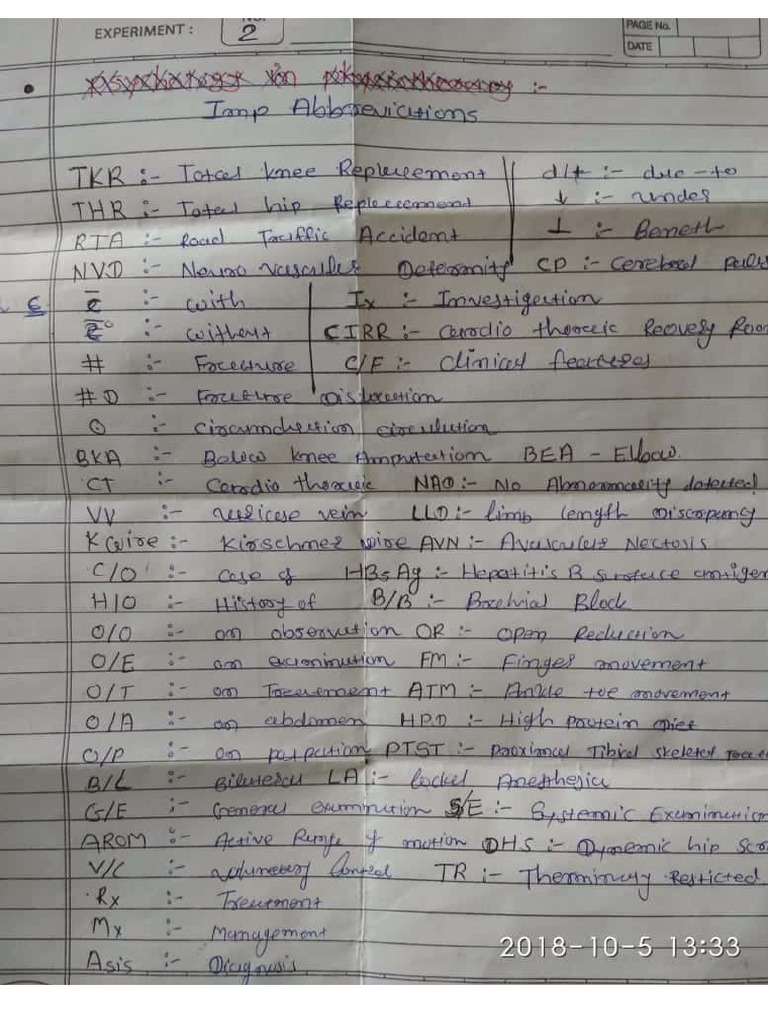 EXPERIMENT :
NO.
2
PAGE No.
DATE
Imp Abbreviations
TKR :- Total knee Replacement
d/t :- due-to
THR :- Total hip Replacement
↓ :- under
RTA :- Road Traffic Accident
⊥ :- Beneth
NVD :- Neuro vascular Determity CP :- Cerebral
c̄ :- with Ix :- Investigation
c̄° :- without CIRR :- Cardio thoracic Recovery Room
# :- Fracture C/F :- clinical features
#D :- Fracture Dislocation
:- circumduction circulation
BKA :- Below knee Amputation BEA - Elbow.
CT :- Cardio thoracic NAD :- No Abnormality detected
VV :- varicose vein LLD :- limb length Discrepancy
K wire :- Kirschner wire AVN :- Avascular Nectosis
C/O :- case of HBsAg :- Hepatitis B surface antigen
H/O :- History of B/B :- Brachial Block
O/O :- on observation OR :- Open Reduction
O/E :- on examination FM :- Finger movement
O/T :- on Treatment ATM :- Ankle toe movement
O/A :- on abdomen HPD :- High protein Diet
O/P :- on palpation PTST :- proximal Tibial skeletal
B/L :- Bilateral LA :- Local Anesthesia
G/E :- General examination S/E :- Systemic Examination
AROM :- Active Range of motion DHS :- Dynamic hip
V/C :- voluntary Control TR :- Restricted
Rx :- Treatment
Mx :- Management
Asis :- Diagnosis
2018-10-5 13:33